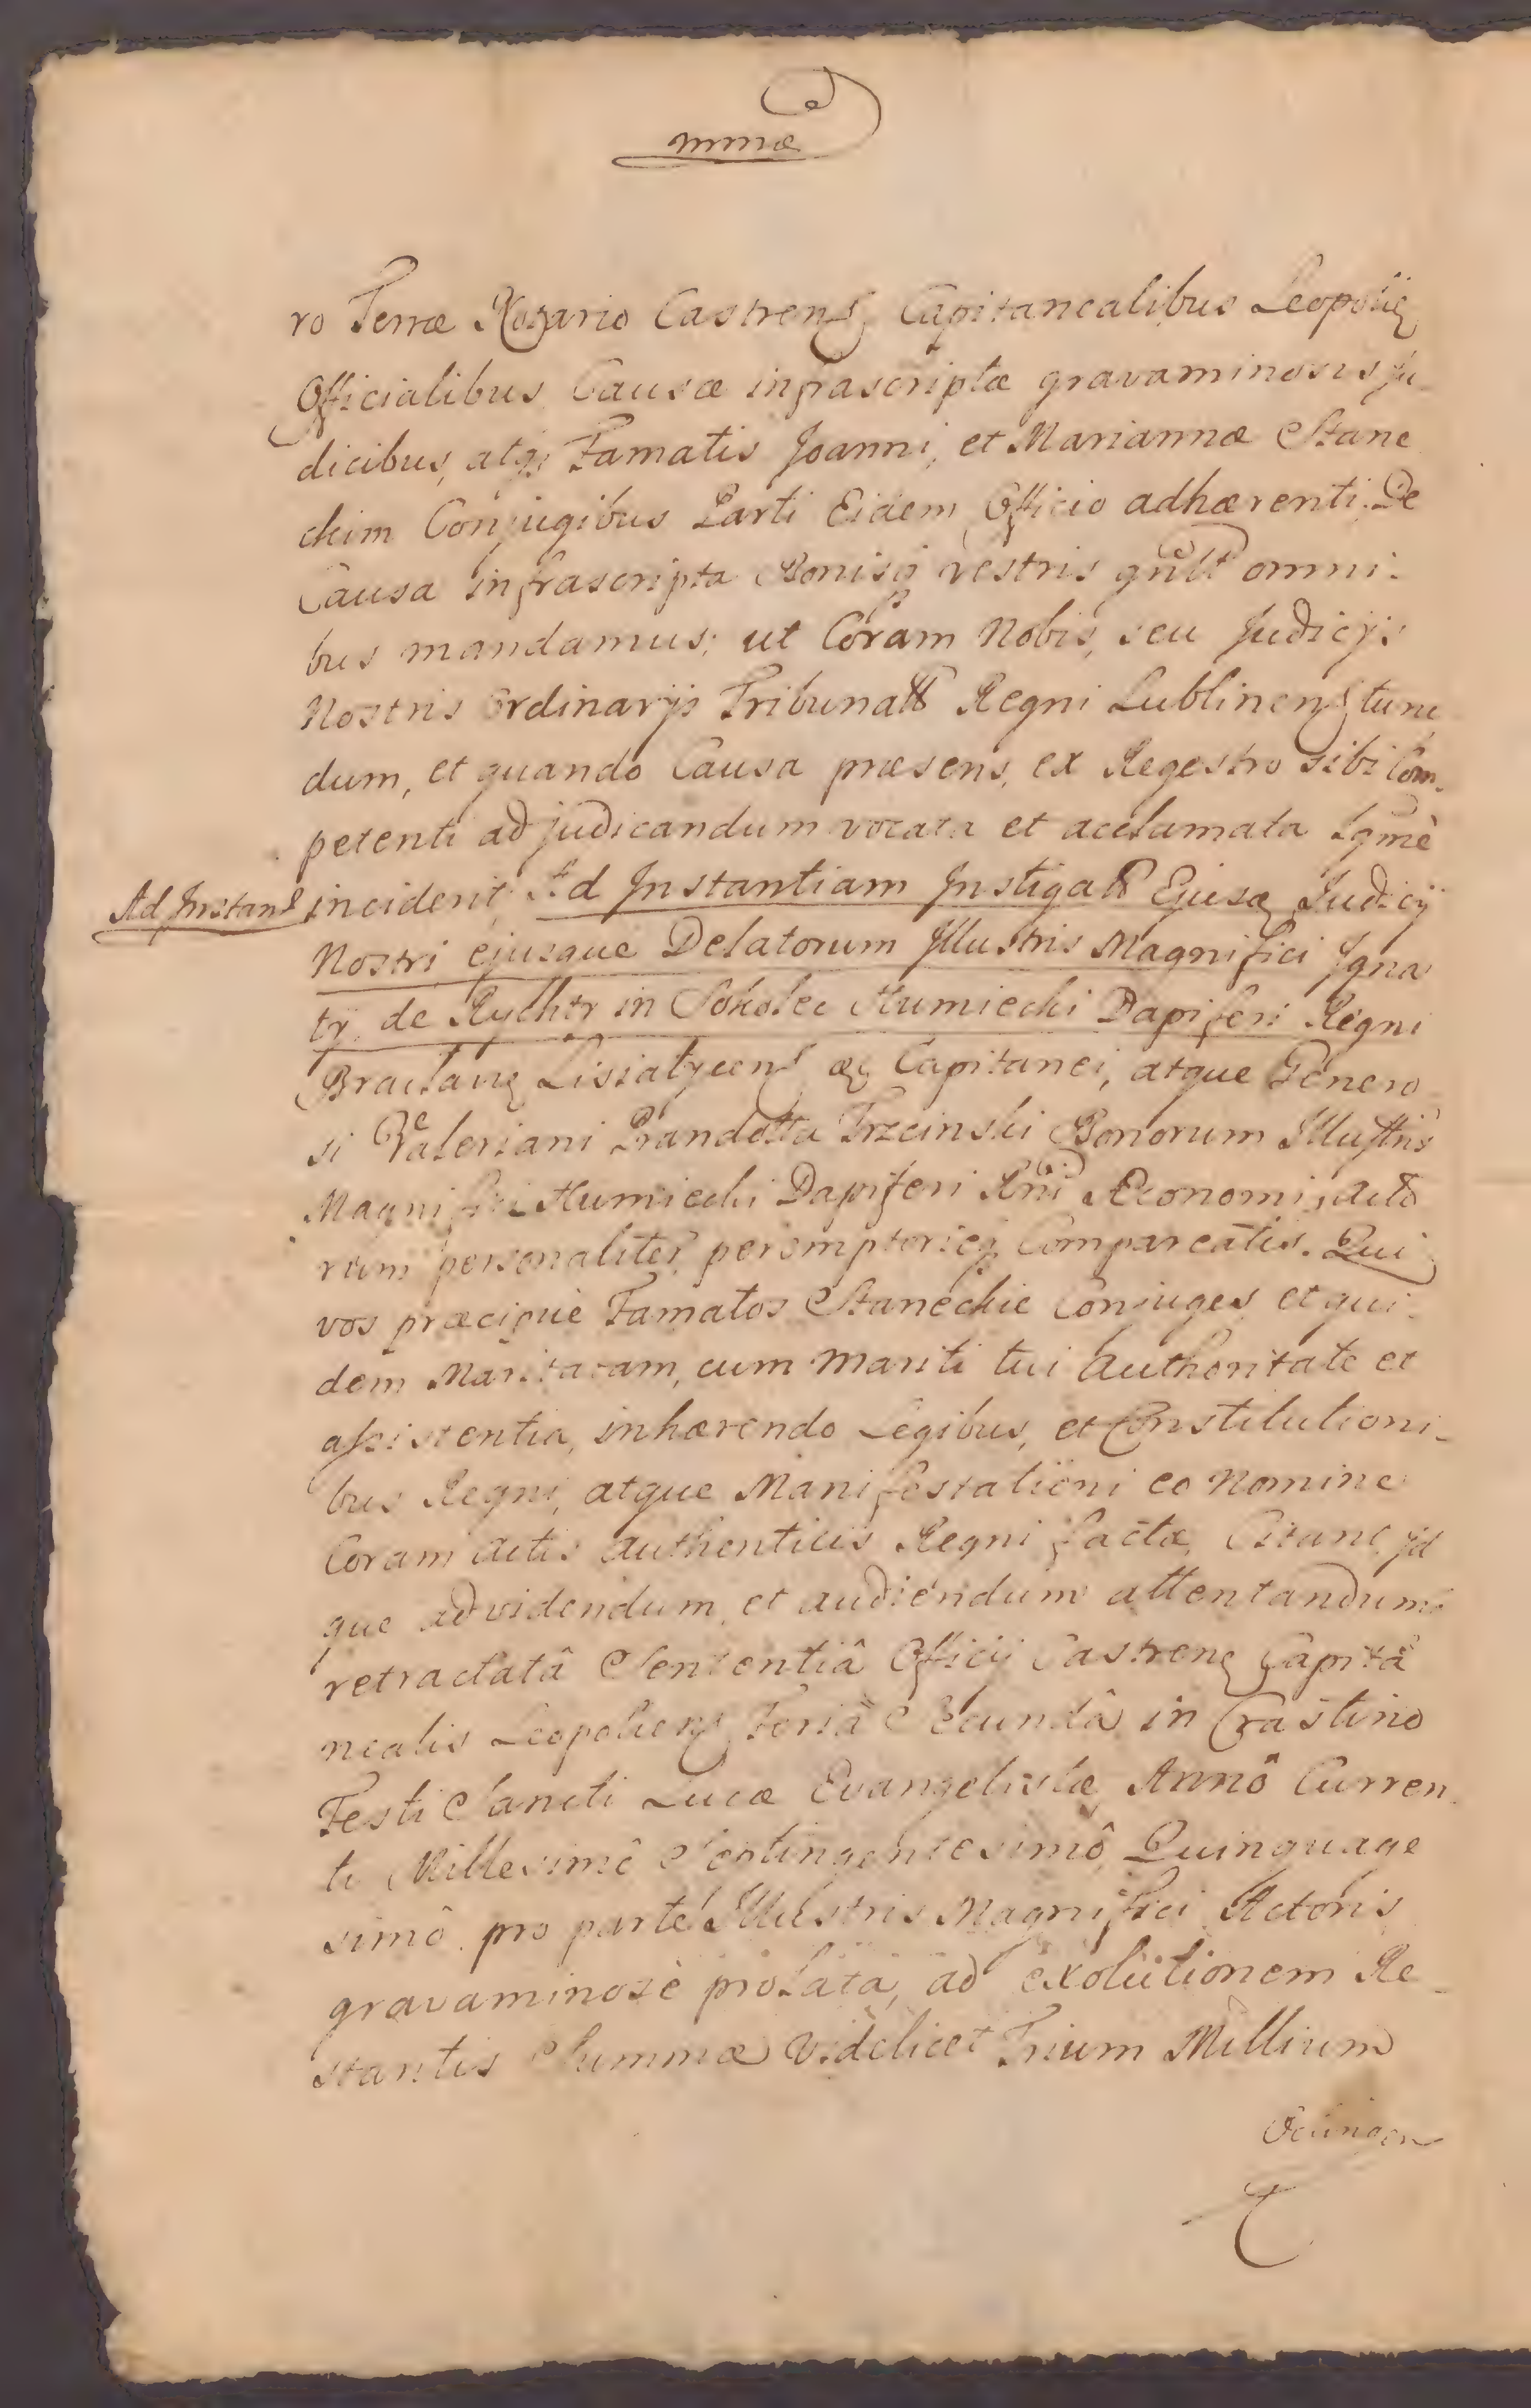 mmæ
ro Terræ Notario Castrens Capitanealibus Leopoliens
Officialibus Causæ infrascriptæ gravaminosis Ju
dicibus, atq; Famatis Joanni, et Mariannæ Stane
ckim Conjugibus Parti Eidem Officio adhærenti. De
Causa infrascripta Bonisq vestris gnlt omni-
bus mandamus; ut Coram Nobis, seu Judicijs
Nostris Ordinarijs Tribunals Regni Lublinens tunc
dum, et quando Causa præsens, ex Regestro sibi Com-
petenti ad judicandum vocata et acclamata Lgmè
Ad Instans
incident, Ad Instantiam Instigats Ejusq Judicij
Nostri ejusque Delatorum Illustris Magnifici Igna
tij de Rycht in Sokolec Humiecki Dapiferi Regni
Braclavs Lisiatycens &c Capitanei, atque Genero
si Valeriani Prandotta Trzcinski Bonorum Illustris
Magnifici Humiecki Dapiferi Rni Æconomi, acto
rum personaliter peremptorieq Compareatis. Qui
vos præcipuè Famatos Staneckie Conjuges, et qui-
dem Maritatam, cum mariti tui Authoritate et
assistentia, inhærendo Legibus, et Constitutioni-
bus Regni, atque Manifestationi eo Nomine
Coram actis authenticis Regni factæ, Citant Id
que ad videndum, et audiendum attentandum
retractatâ Sententiâ Officij Castrens Capita
nealis Leopoliens Feriâ Secundâ in Crastino
Festi Sancti Lucæ Evangelistæ Annô Curren
ti Millesimô Septingentesimô Quinquage
simô pro parte Illustris Magnifici Actoris
gravaminosè prolata, ad exolutionem Re-
stantis Summæ Videlicet Trium Millium